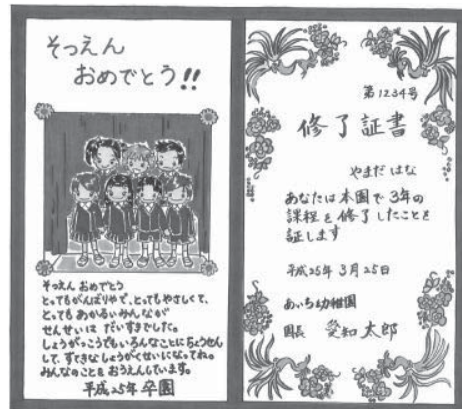 そつえん
おめでとう!!
そつえん おめでとう
とってもがんばりやで、とってもやさしくて、
とってもあかるいみんなが
せんせいは だいすきでした。
しょうがっこうでもいろんなことにちょうせん
して、すてきなしょうがくせいになってね。
みんなのことをおうえんしています。
平成25年 卒園
第1234号
修了証書
やまだ はな
あなたは本園で3年の
課程を修了したことを
証します
平成25年3月25日
あいち幼稚園
園長 愛知太郎